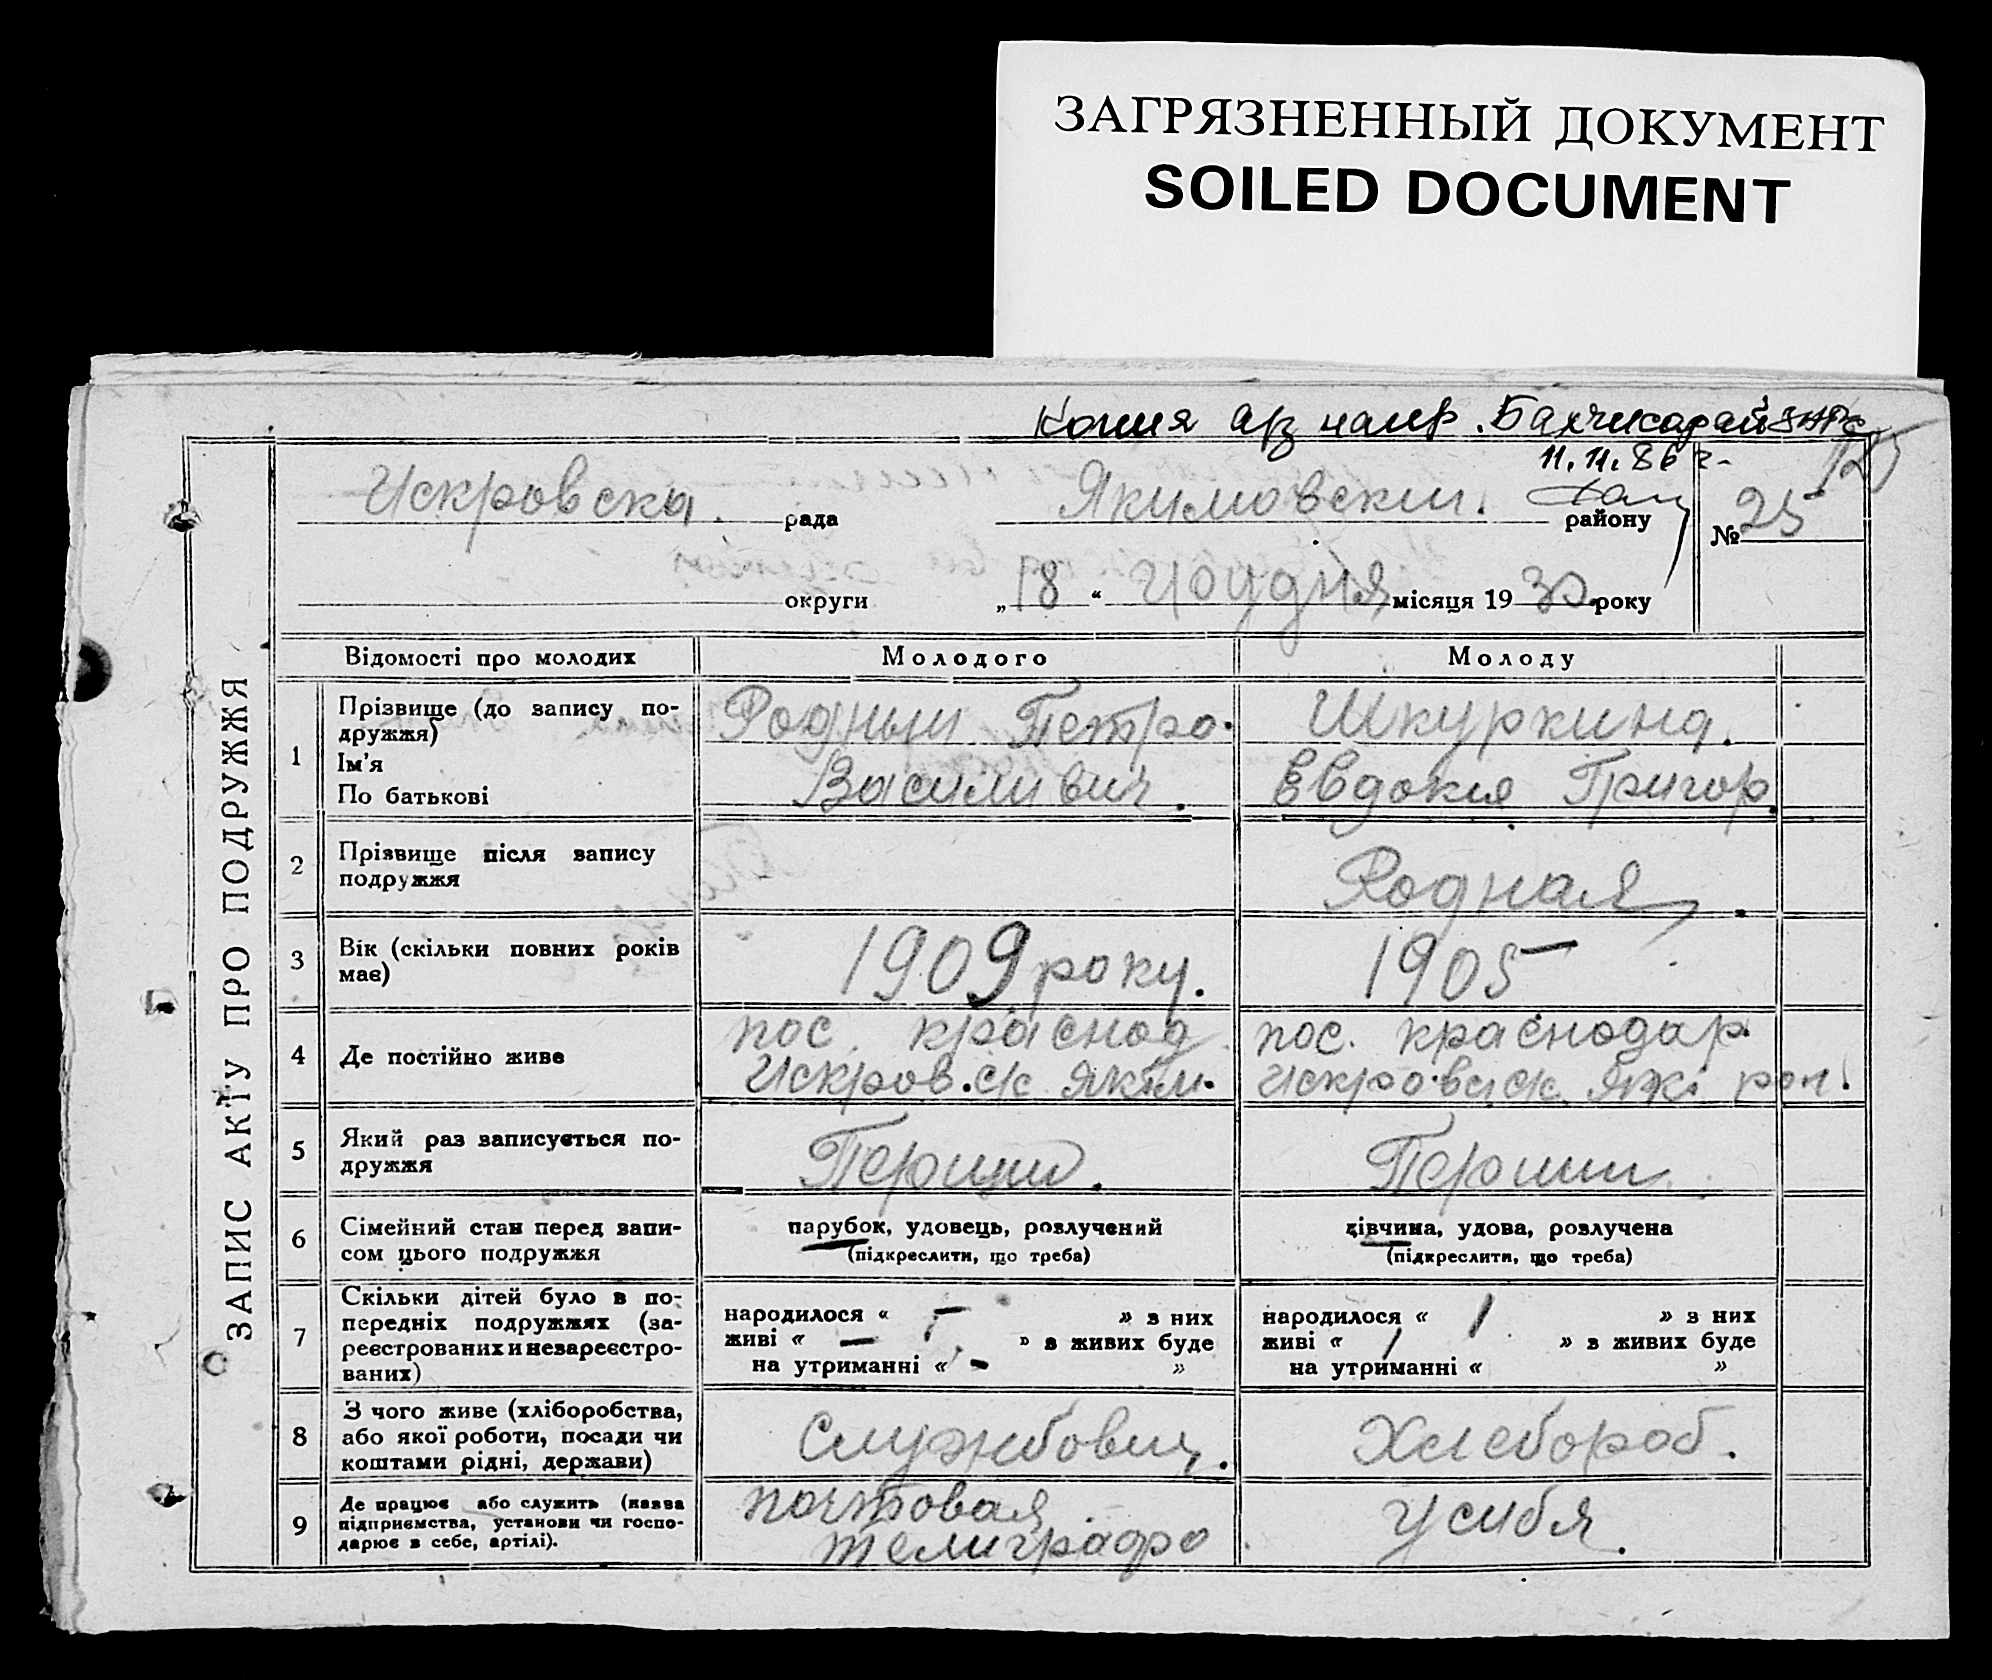 ЗАГРЯЗНЕННЫЙ ДОКУМЕНТ
SOILED DOCUMENT
Копия арз напр. Бахчисарай ЗАГС
11.11.86 г. 125
ЗАПИС АКТУ ПРО ПОДРУЖЖЯ
Искровска рада Якимовскии. району № 25
округи „18“ Грудня місяця 1930 року
Відомості про молодих Молодого Молоду
1 Прізвище (до запису по-
дружжя)
Ім'я
По батькові
Родныи Петро.
Василивич.
Шкуркина.
Евдокия Григор.
2 Прізвище після запису
подружжя
Родная.
3 Вік (скільки повних років
має)
1909 року.
1905
4 Де постійно живе
пос. краснод
Искров. с/с Якім.
пос. краснодар.
Искровс/с Які рон.
5 Який раз записується по-
дружжя
Перший.
Перший
6 Сімейний стан перед запи-
сом цього подружжя
парубок, удовець, розлучений
(підкреслити, що треба)
дівчина, удова, розлучена
(підкреслити, що треба)
7 Скільки дітей було в по-
передніх подружжях (за-
реєстрованих и незареєстро-
ваних)
народилося « — » з них
живі « — » з живих буде
на утриманні « - »
народилося « / » з них
живі « / » з живих буде
на утриманні « »
8 З чого живе (хліборобства,
або якої роботи, посади чи
коштами рідні, держави)
Службовиц.
Хлебороб.
9 Де працює або служить (назва
підприємства, установи чи госпо-
дарює в себе, артілі).
почтовая
телиграфо
Усибя.